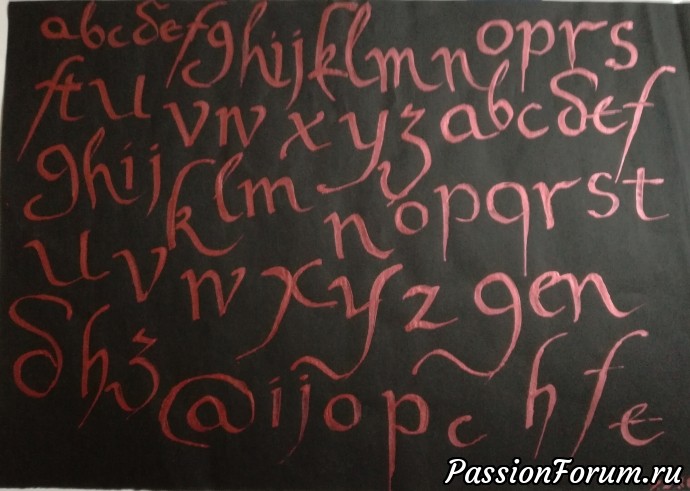 abcdefghijklmnoprs
ftuvwxyzabcdef
ghijklmnopqrst
uvwxyzgen
dhz@ijopchfe
PassionForum.ru